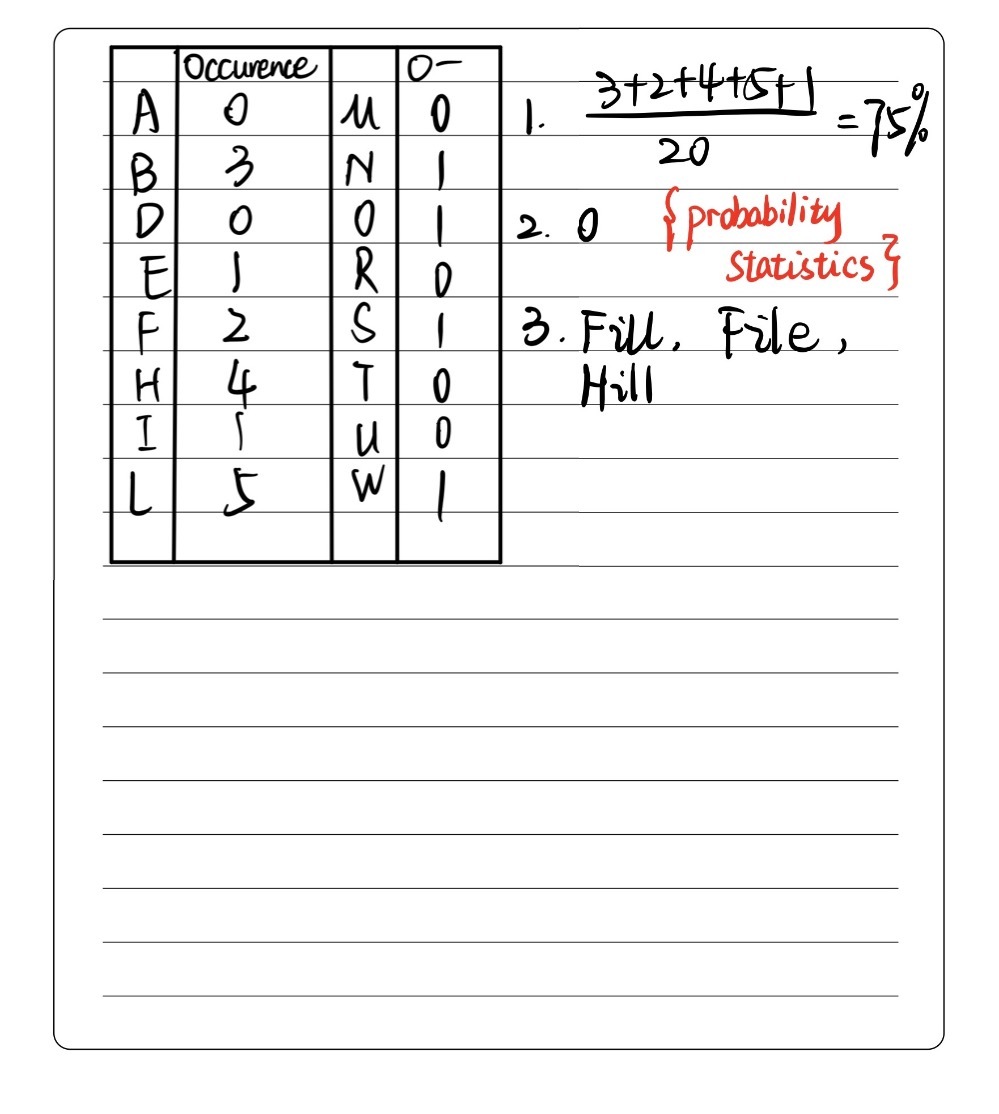 Occurence O-
A 0 M 0
B 3 N 1
D 0 O 1
E 1 R 0
F 2 S 1
H 4 T 0
I 1 U 0
L 5 W 1
1. 3+2+4+5+1
20
=75%
2. 0 {probability
Statistics}
3. Fill, File,
Hill